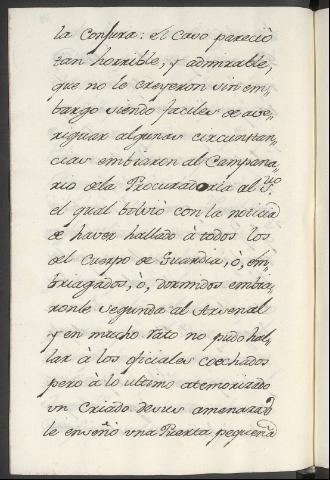 la Conjura: el Caso pareciò
tan horrible, y admirable,
que no le creyeron sin em„
bargo siendo faciles de ave„
riguar algunas circunstan„
cias embiaron al Campana„
rio de la Procuradoria al S.rio
el qual bolviò con la noticia
de haver hallado à todos los
del Cuerpo de Guardia, ò, em„
briagados, ò, dormidos embia„
ronle segunda al Arsenal
y en mucho rato no pudo hal„
lar à los oficiales coechados
pero à lo ultimo atemorizado
un Criado de sus amenazas
le enseñò una Puerta pequeña